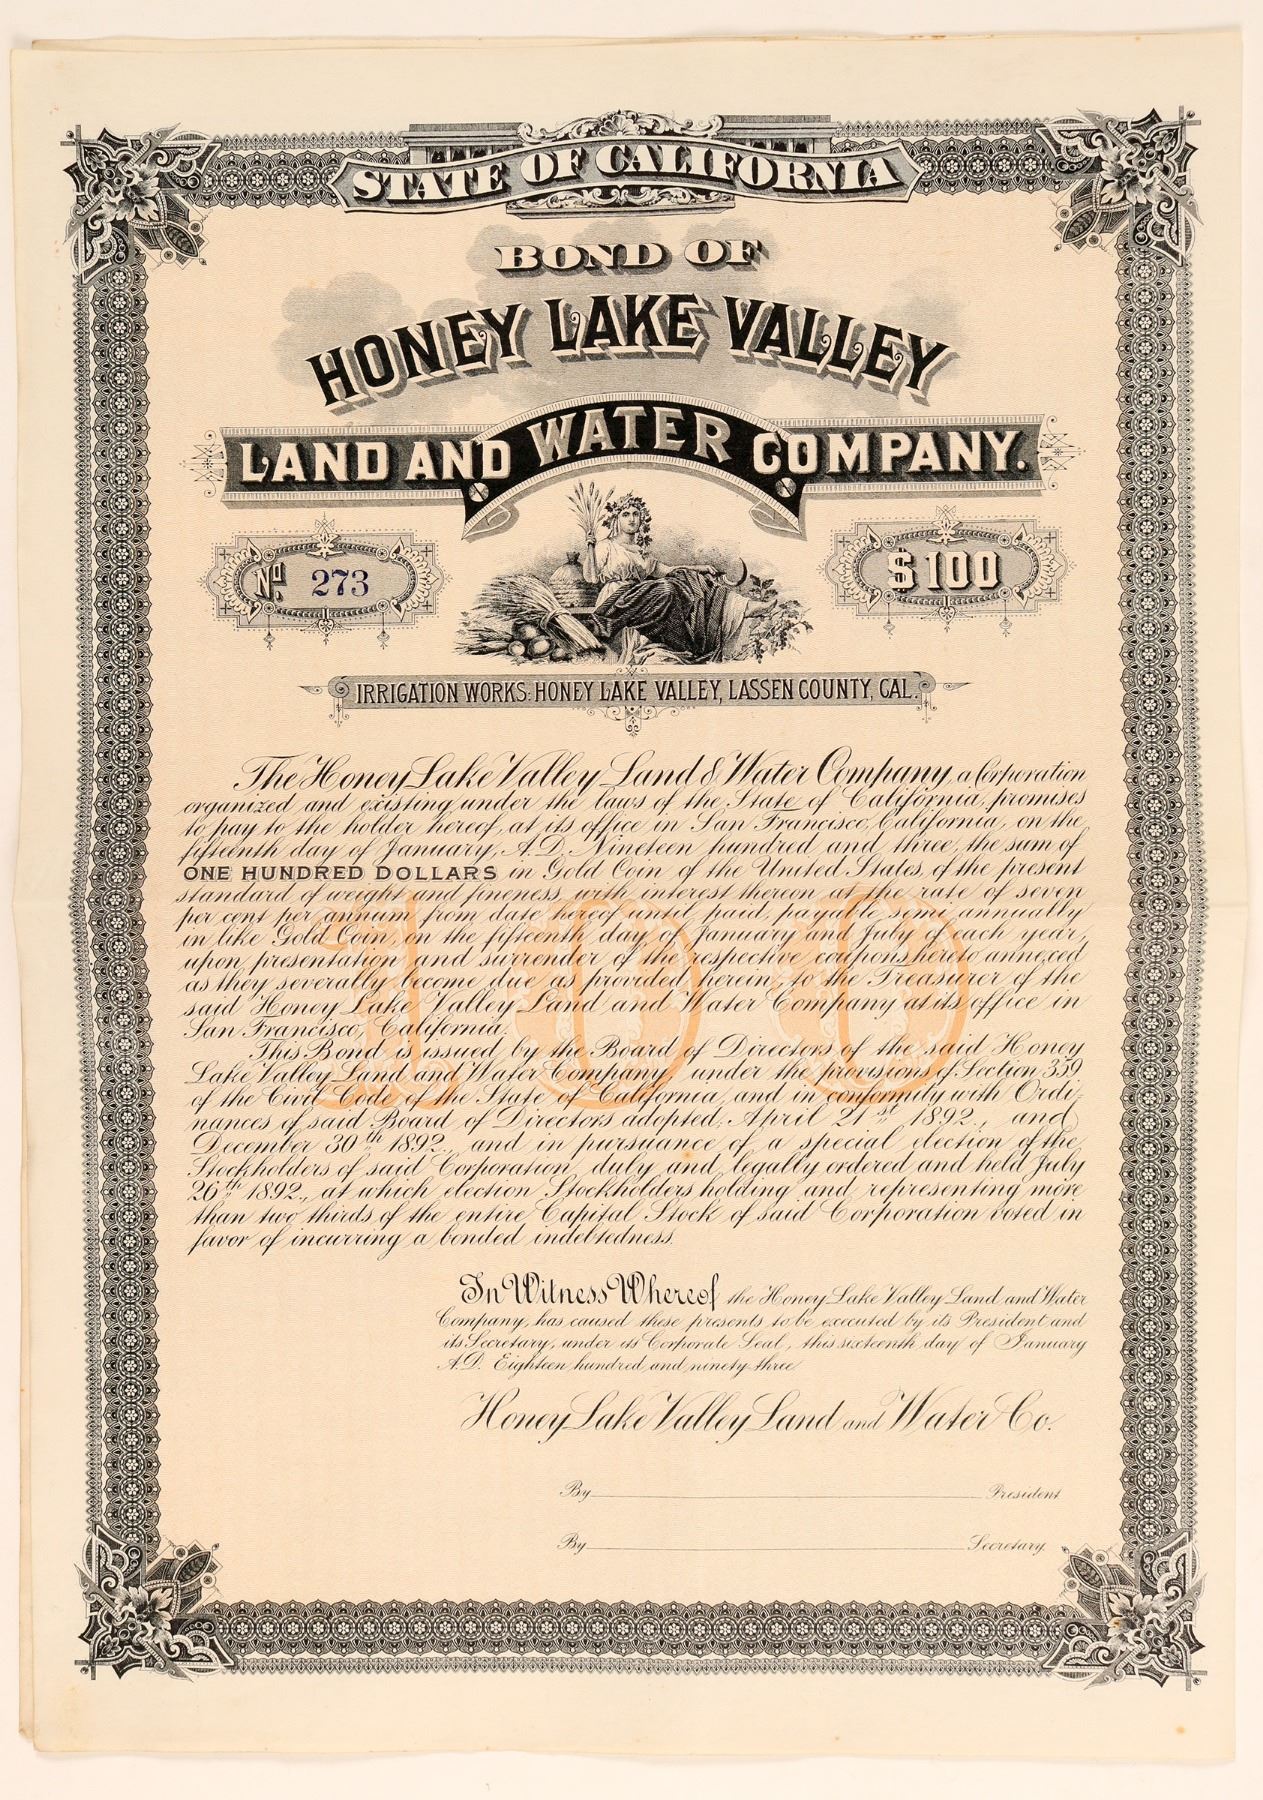 STATE OF CALIFORNIA
BOND OF
HONEY LAKE VALLEY
LAND AND WATER COMPANY.
No. 273
$100
IRRIGATION WORKS: HONEY LAKE VALLEY, LASSEN COUNTY, CAL.
The Honey Lake Valley Land & Water Company, a Corporation
organized and existing under the laws of the State of California, promises
to pay to the holder hereof, at its office in San Francisco, California, on the
fifteenth day of January, A.D. Nineteen hundred and three, the sum of
ONE HUNDRED DOLLARS in Gold Coin of the United States, of the present
standard of weight and fineness, with interest thereon at the rate of seven
per cent per annum from date hereof until paid, payable semi annually
in like Gold Coin, on the fifteenth day of January and July of each year,
upon presentation and surrender of the respective coupons hereto annexed
as they severally become due as provided herein, to the Treasurer of the
said Honey Lake Valley Land and Water Company at its office in
San Francisco, California.
This Bond is issued by the Board of Directors of the said Honey
Lake Valley Land and Water Company under the provisions of Section 359
of the Civil Code of the State of California, and in conformity with Ordi-
nances of said Board of Directors adopted, April 21st 1892., and
December 30th 1892., and in pursuance of a special election of the
Stockholders of said Corporation duly and legally ordered and held July
26th 1892., at which election Stockholders holding and representing more
than two thirds of the entire Capital Stock of said Corporation voted in
favor of incurring a bonded indebtedness.
100
In Witness Whereof the Honey Lake Valley Land and Water
Company, has caused these presents to be executed by its President and
its Secretary, under its Corporate Seal, this sixteenth day of January
A.D. Eighteen hundred and ninety three
Honey Lake Valley Land and Water Co.
By President
By Secretary.